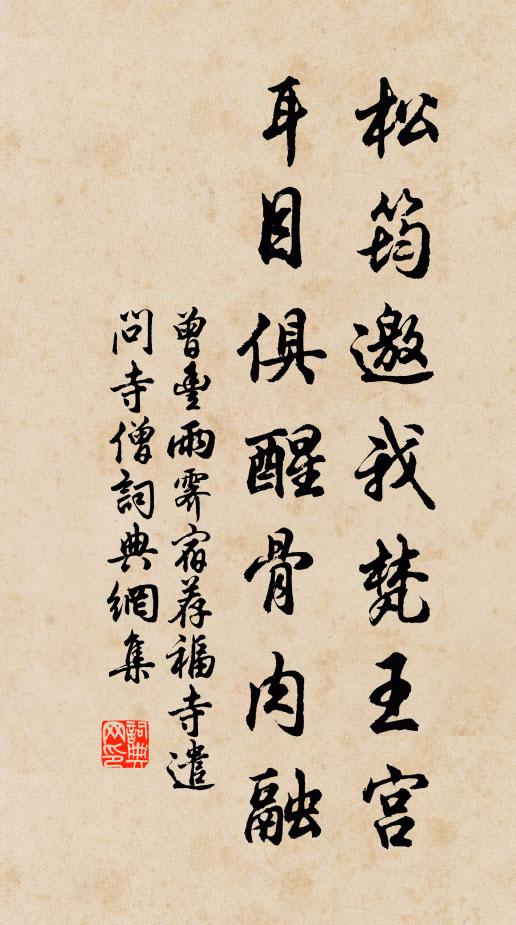 松筠邀我梵王宮
耳目俱醒骨肉融
曾豐雨霽宿荐福寺遣
問寺僧詞典網集
詞典
网印